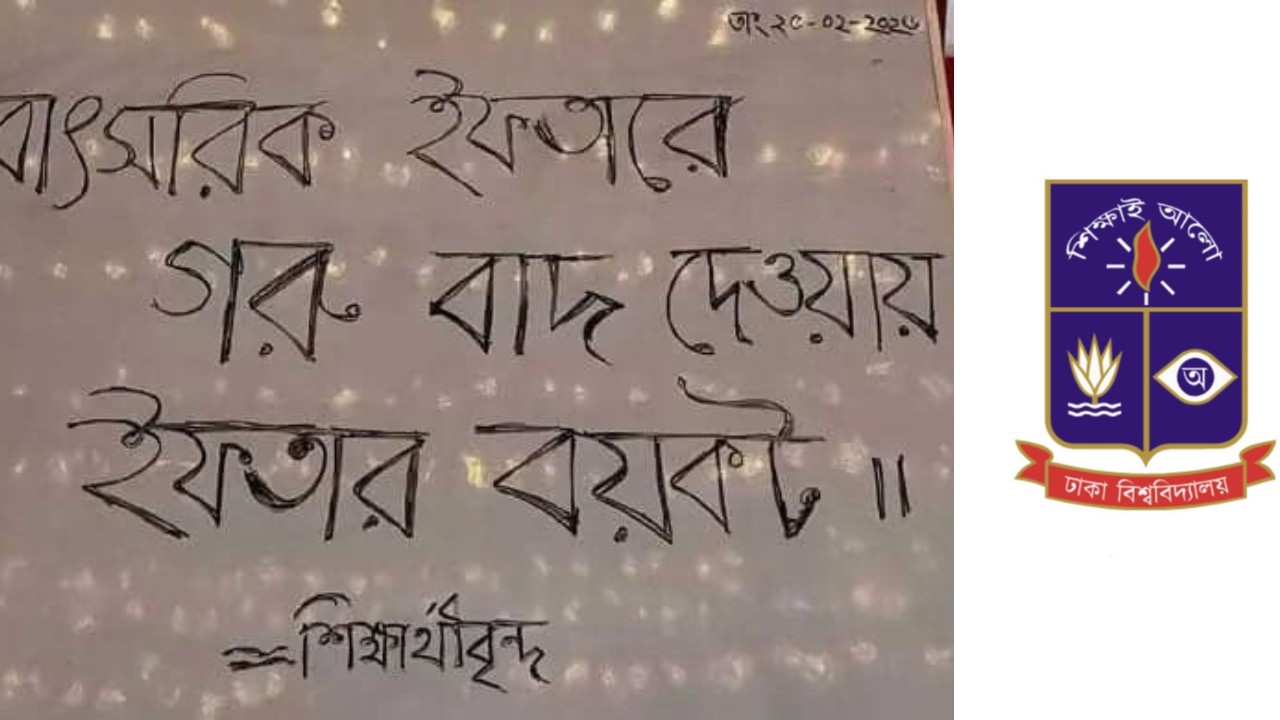 তাং ২৫-০২-২০২৬
বাৎসরিক ইফতারে
গরু বাদ দেওয়ায়
ইফতার বয়কট ॥
= শিক্ষার্থীবৃন্দ
শিক্ষাই আলো
অ
ঢাকা বিশ্ববিদ্যালয়